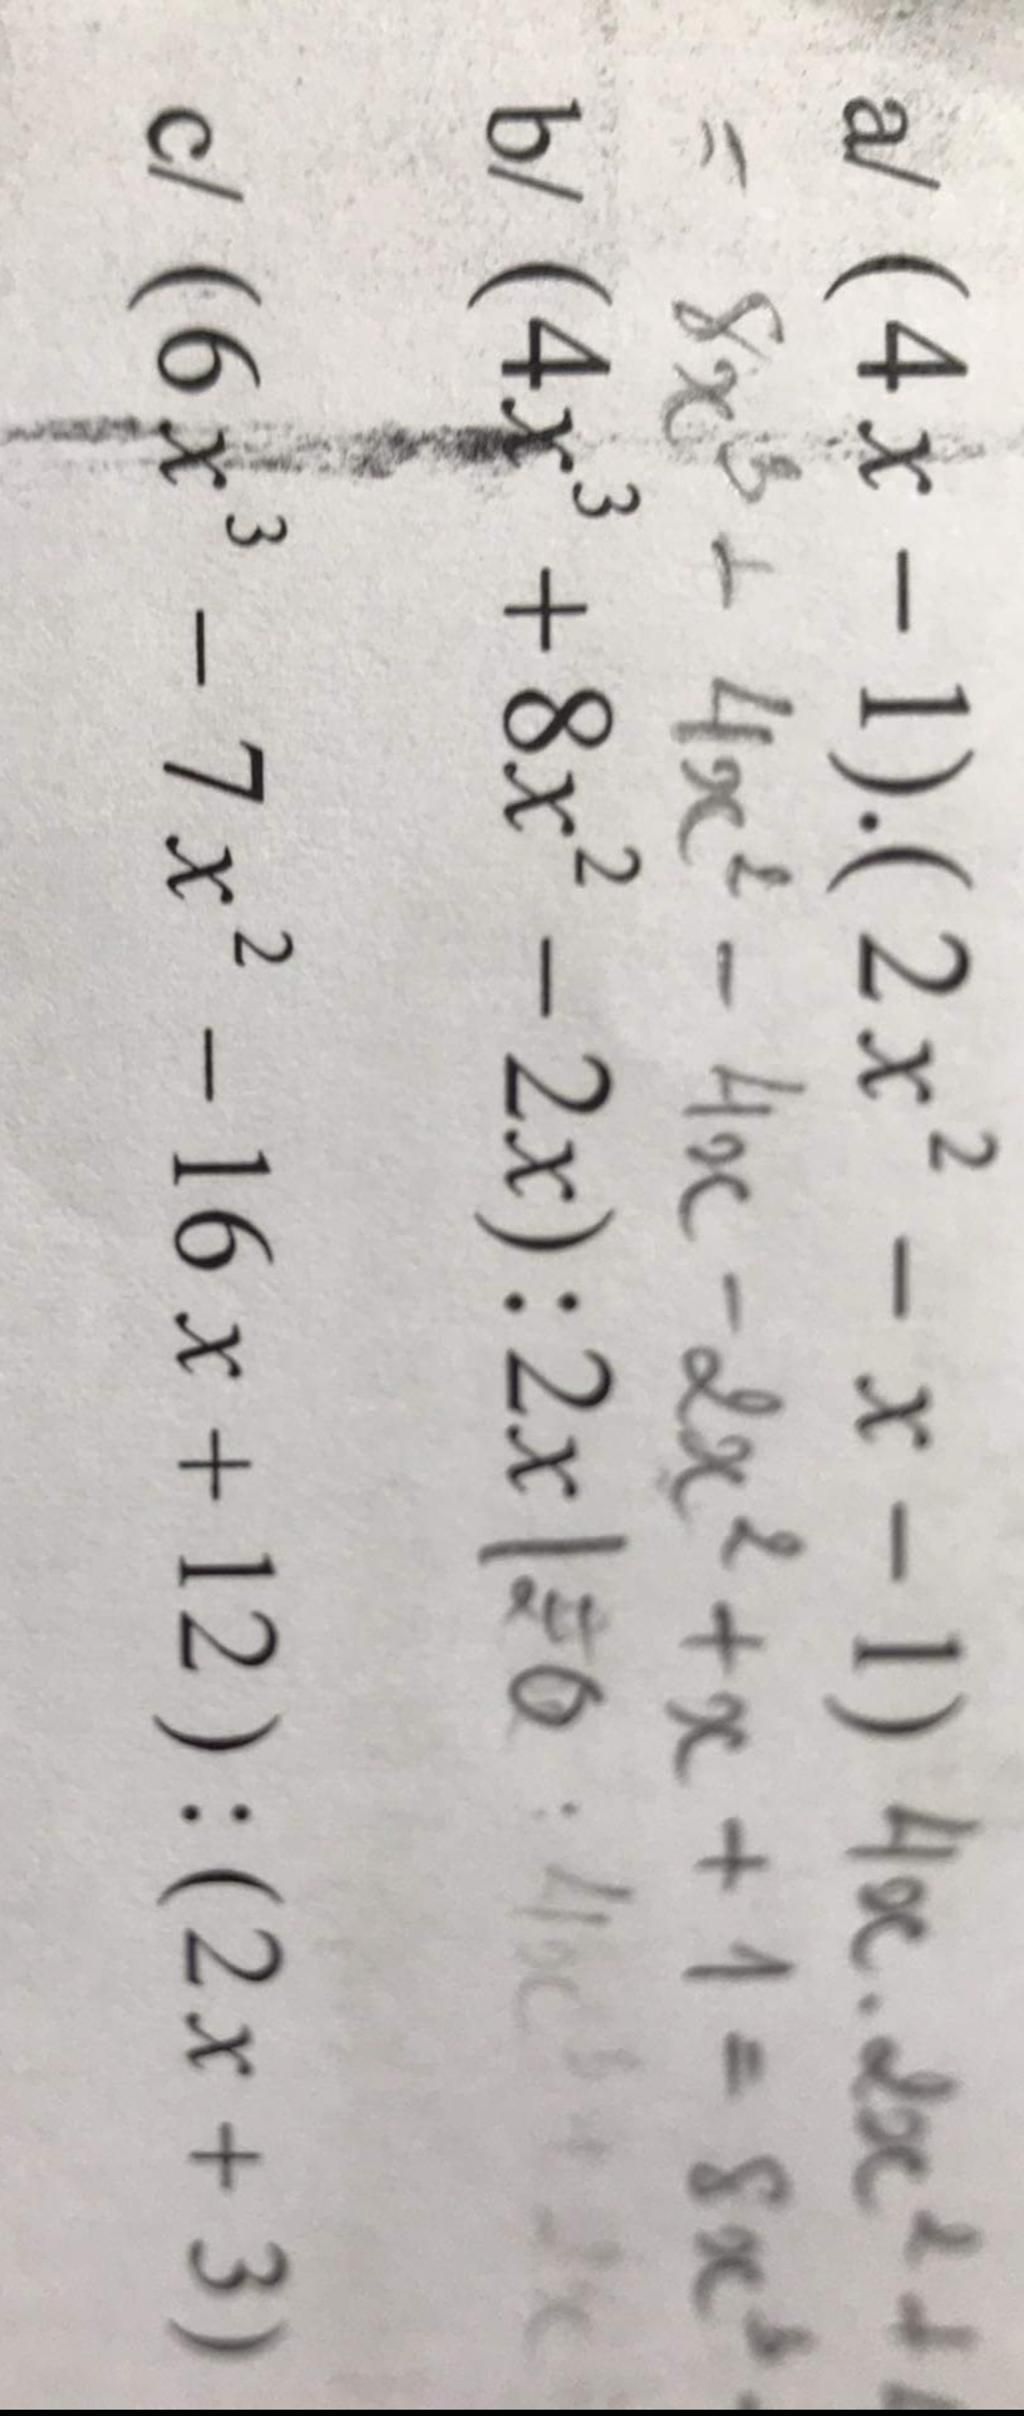 a/ (4x − 1).(2x² − x − 1) 4x.2x² +
= 8x³ + 4x² − 4x − 2x² + x + 1 = 8x³
b/ (4x³ + 8x² − 2x) : 2x
c/ (6x³ − 7x² − 16x + 12) : (2x + 3)